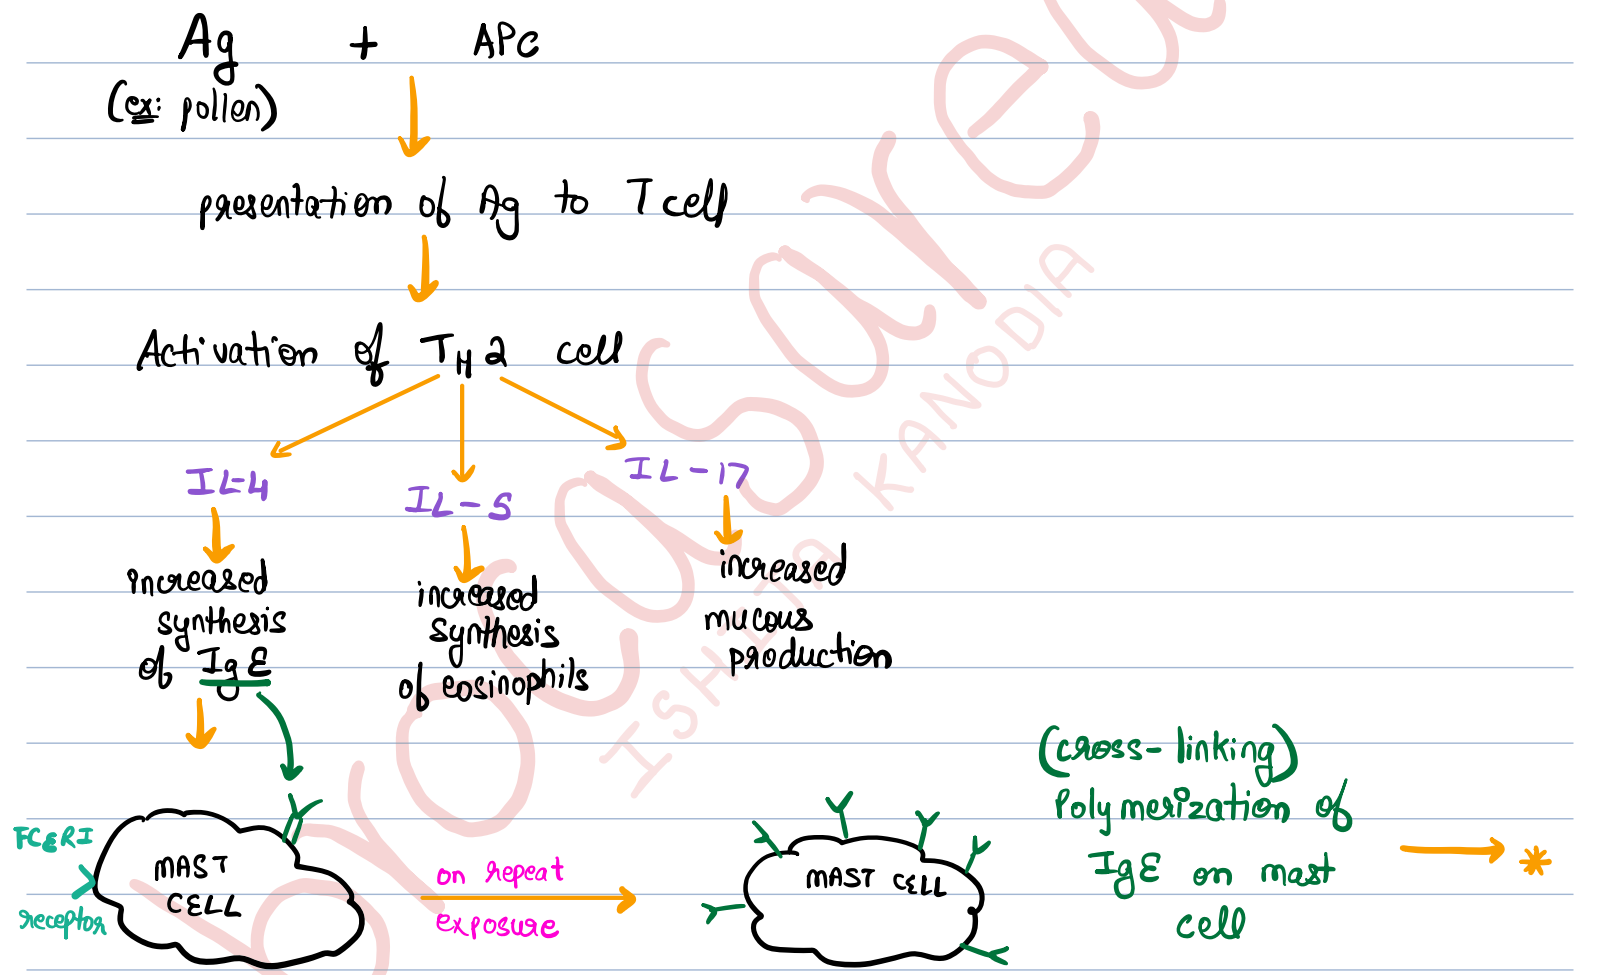 Ag + APC
(ex: pollen)
presentation of Ag to T cell
Activation of TH2 cell
IL-4
IL-5
IL-17
increased
synthesis
of IgE
increased
synthesis
of eosinophils
increased
mucous
production
FCεRI
receptor
MAST
CELL
on repeat
exposure
MAST CELL
(cross-linking)
Polymerization of
IgE on mast
cell
*
brocasarea
ISHITA KANODIA